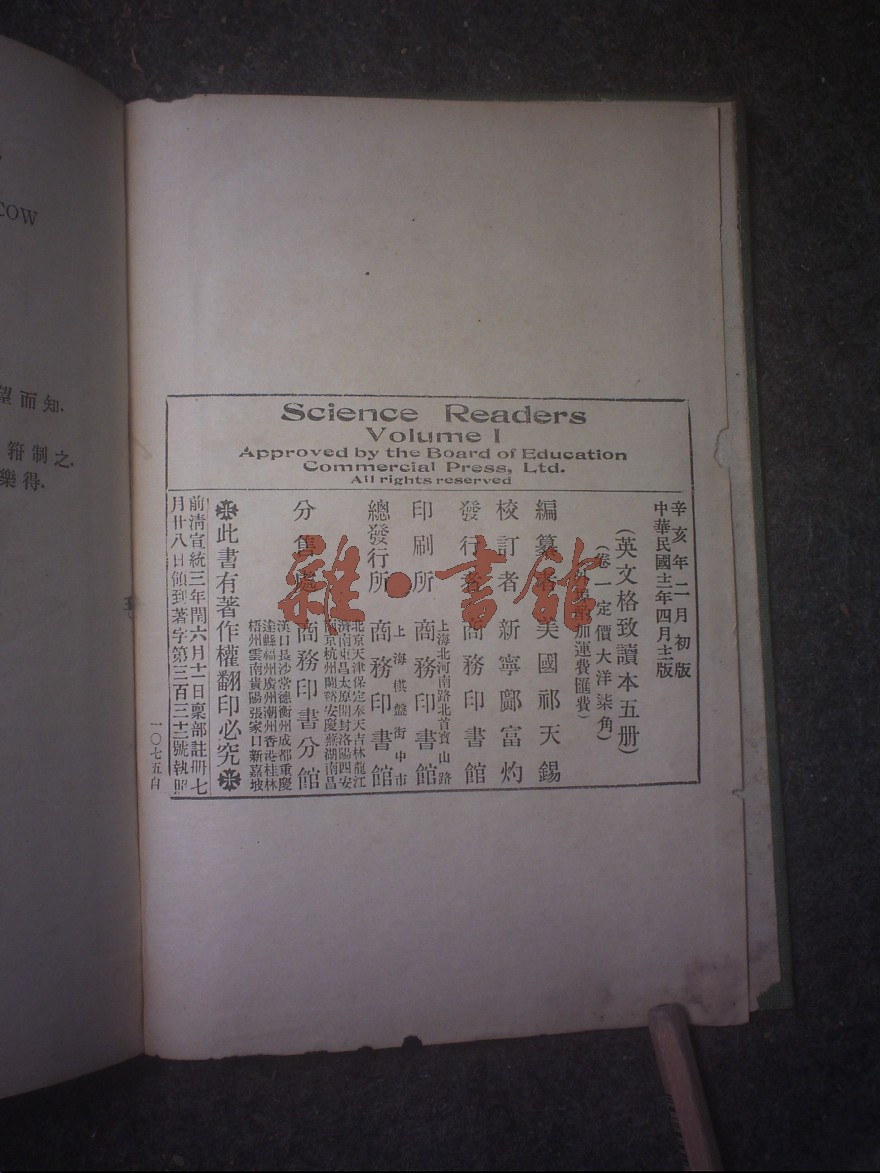 COW
望而知.
箝制之.
樂得.
Science Readers
Volume I
Approved by the Board of Education
Commercial Press, Ltd.
All rights reserved
辛亥年二月初版
中華民國十二年四月十二版
(英文格致讀本五册)
(卷一定價大洋柒角)
加運費匯費)
編纂者 美國祁天錫
校訂者 新寧鄺富灼
發行者 商務印書館
上海北河南路北首寶山路
印刷所 商務印書館
上海棋盤街中市
總發行所 商務印書館
北京天津保定奉天吉林龍江
濟南東昌太原開封洛陽西安
南京杭州蘭谿安慶蕪湖南昌
分售處 商務印書分館
漢口長沙常德衡州成都重慶
達縣福州廣州潮州香港桂林
梧州雲南貴陽張家口新嘉坡
此書有著作權翻印必究
前清宣統三年閏六月十一日稟部註冊七
月廿八日領到著字第三百三十二號執照
一〇七五自
雜·書館